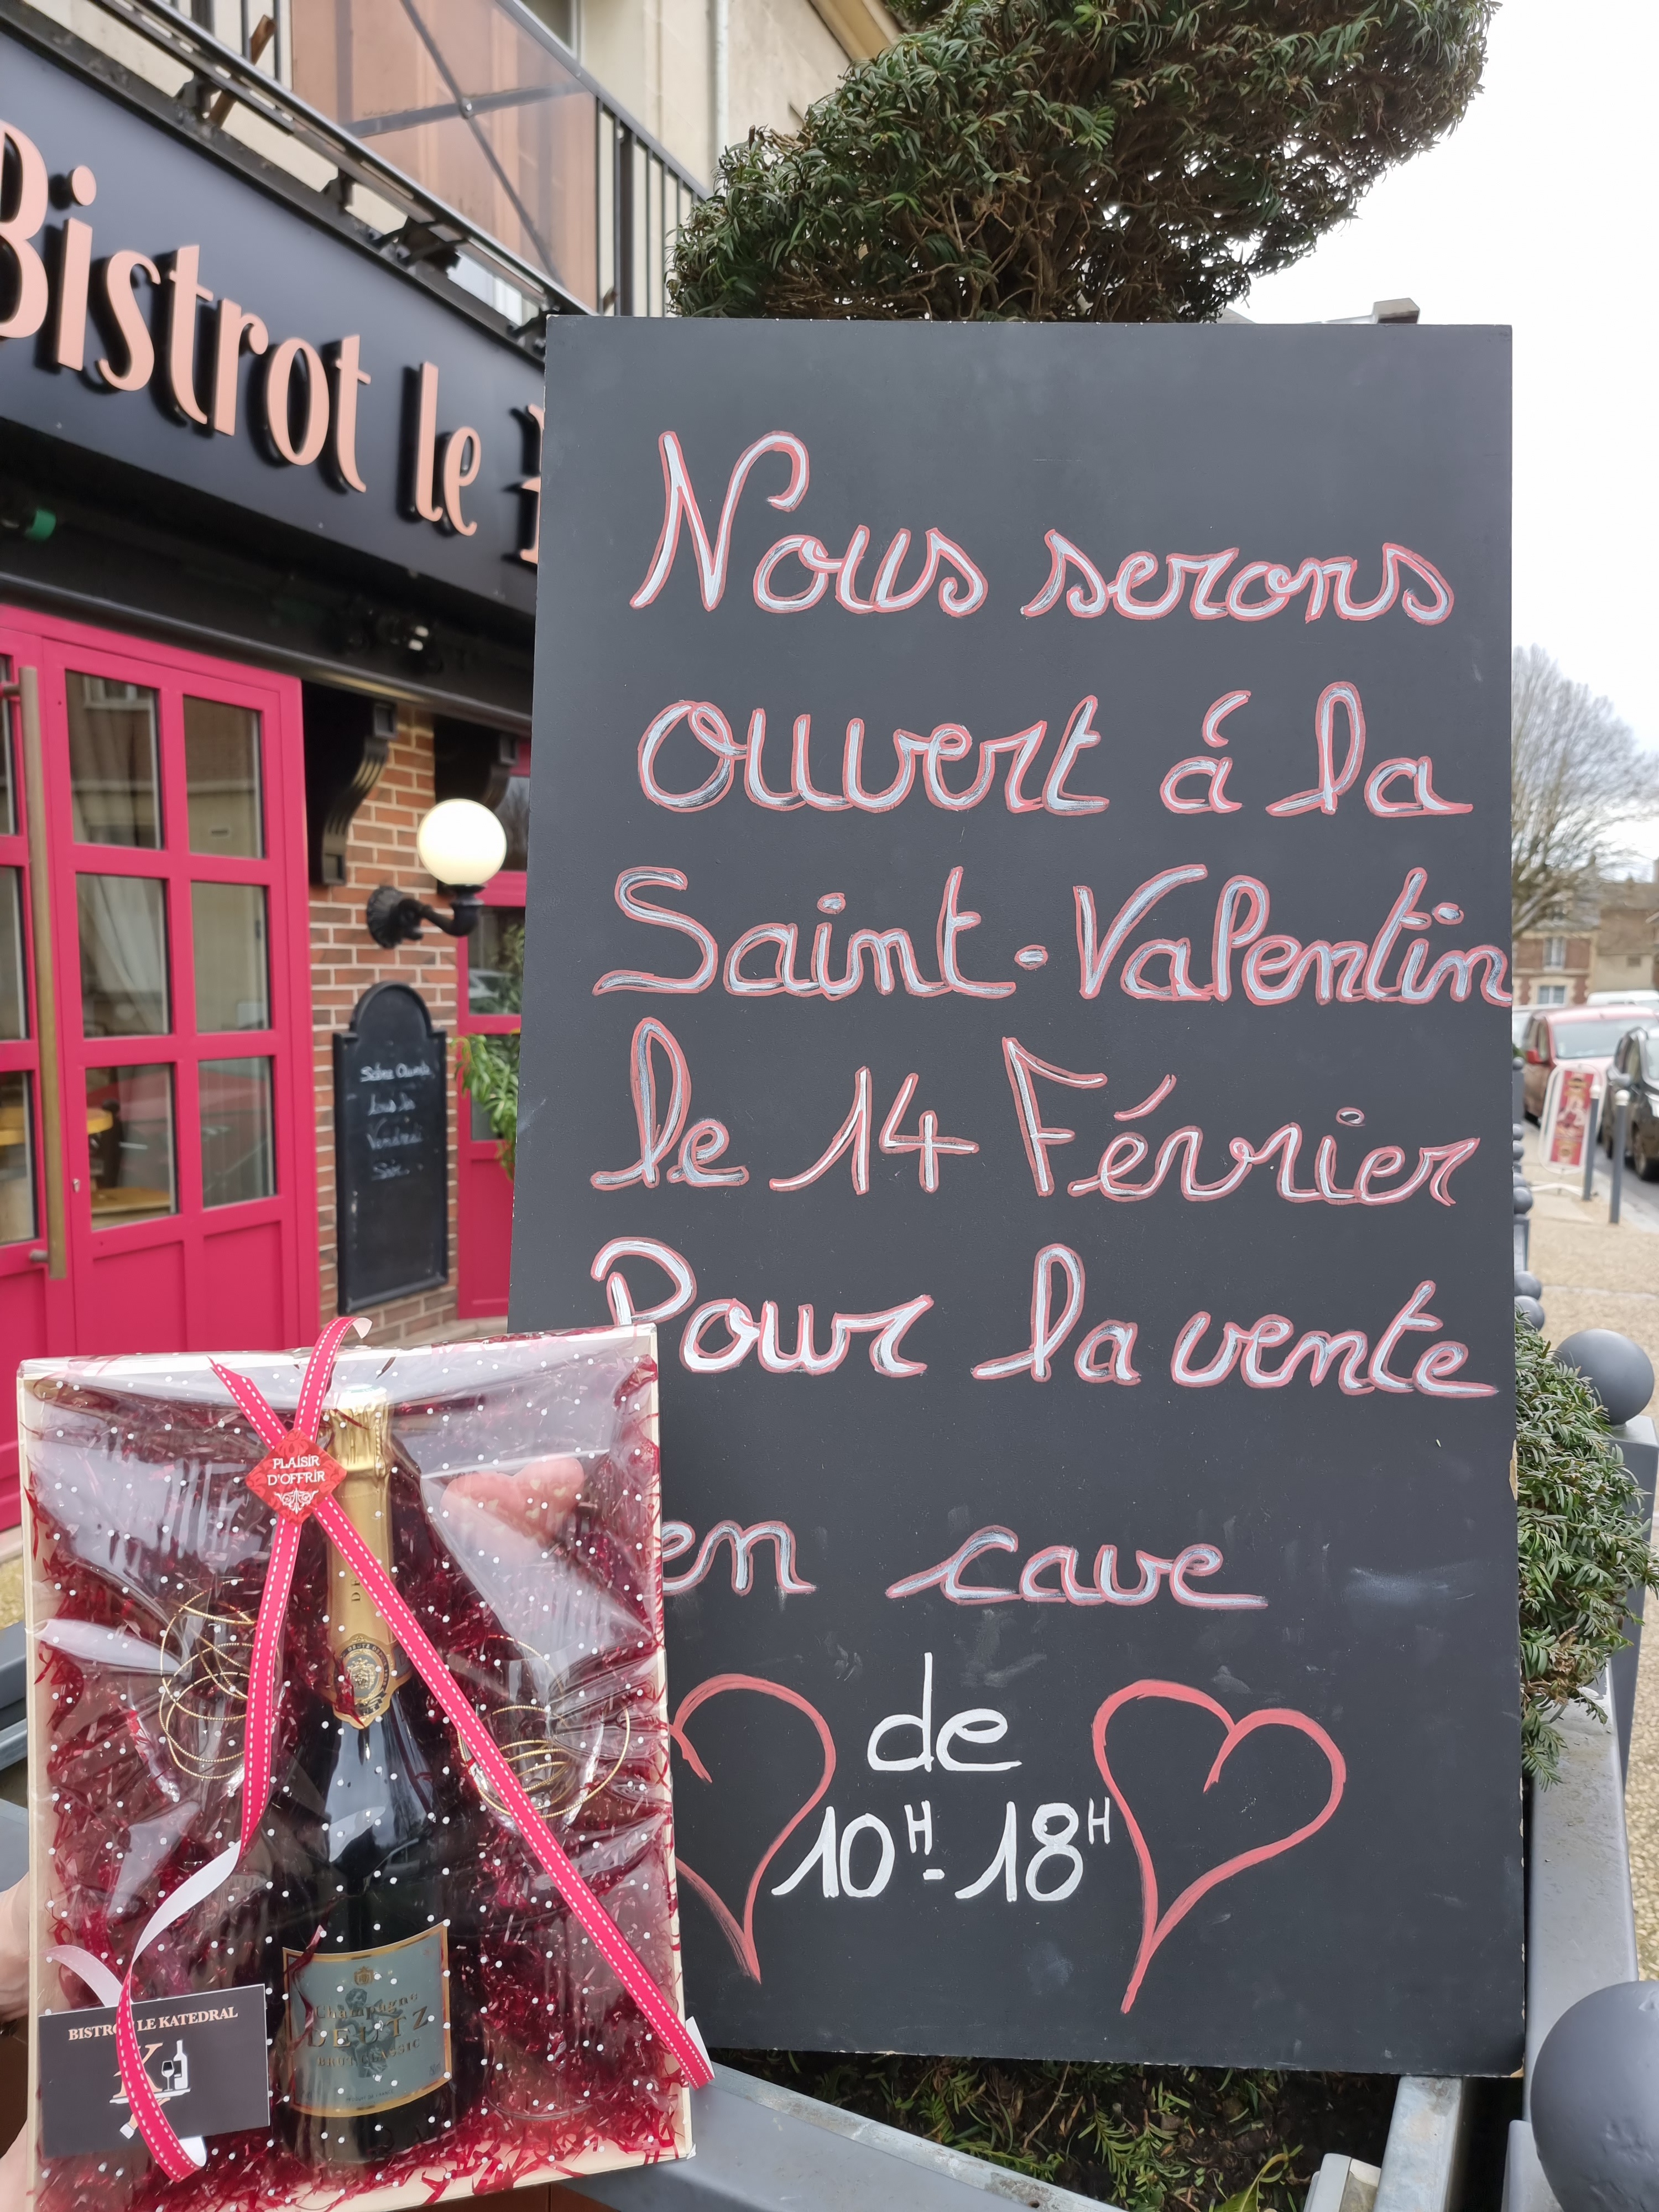 Bistrot le
Nous serons
ouvert á la
Saint-Valentin
le 14 Février
Pour la vente
en cave
de
10H-18H
PLAISIR
D'OFFRIR
BISTROT LE KATEDRAL
K
Champagne
DEUTZ
BRUT CLASSIC
Vendredi
Soir